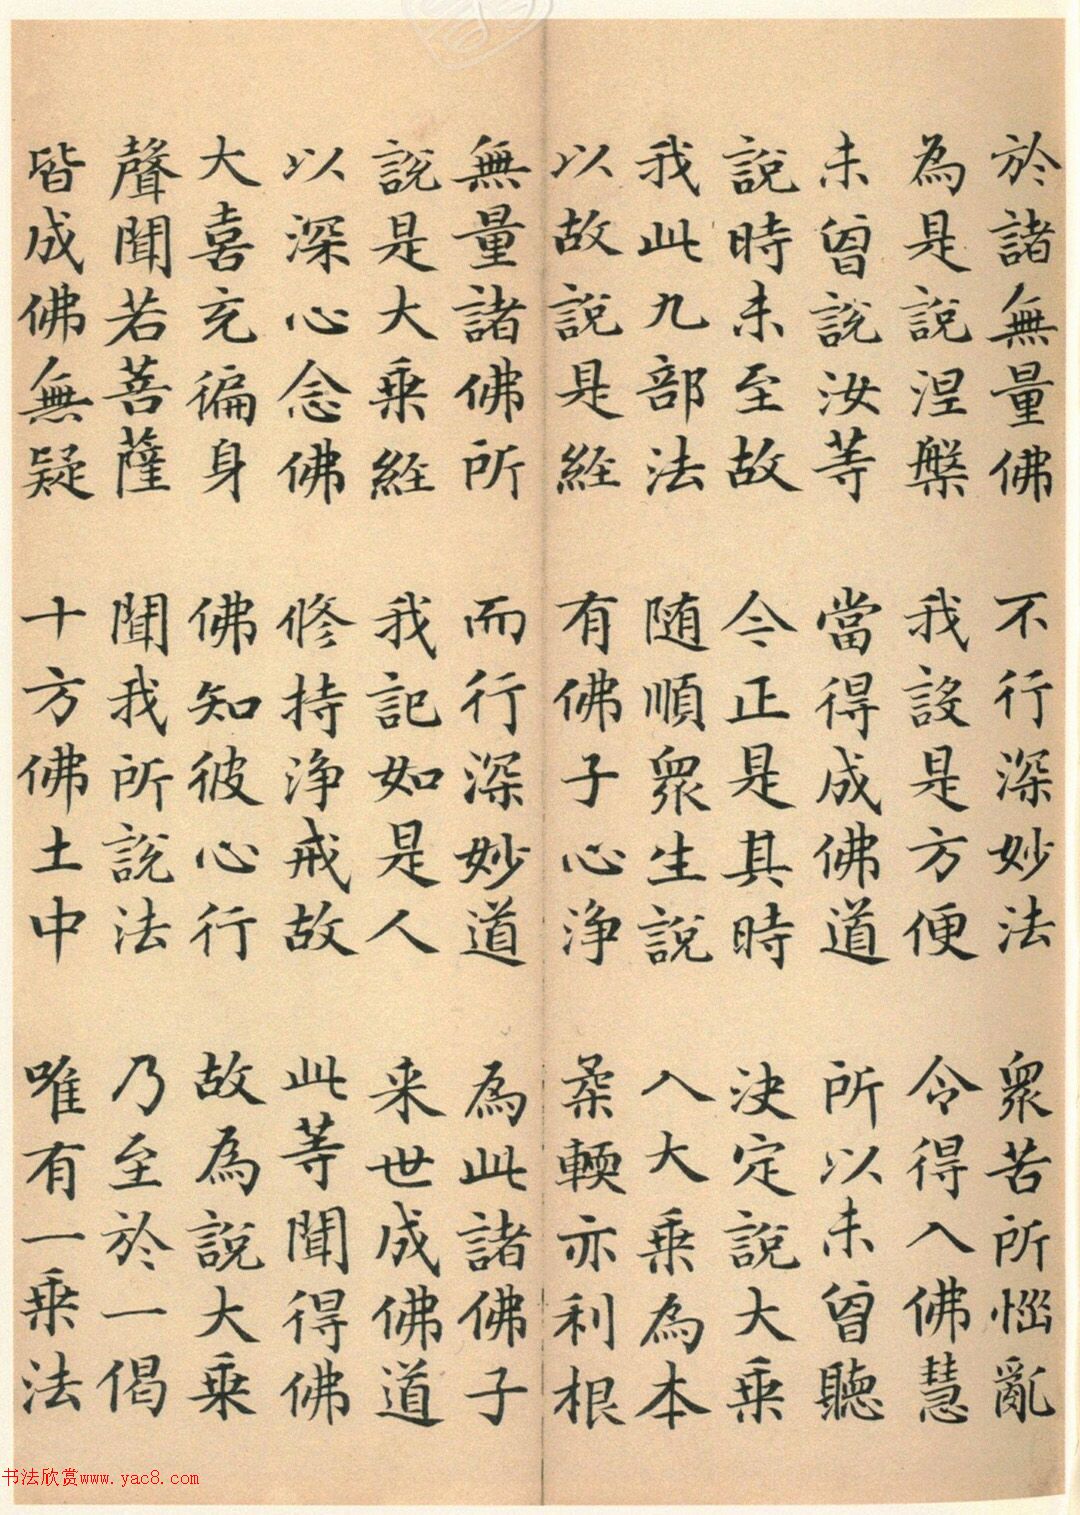 於諸無量佛 不行深妙法 衆苦所惱亂
為是說涅槃 我設是方便 令得入佛慧
未曾說汝等 當得成佛道 所以未曾聽
說時未至故 今正是其時 決定說大乗
我此九部法 随順衆生說 入大乗為本
以故說是經 有佛子心浄 柔輭亦利根
無量諸佛所 而行深妙道 為此諸佛子
說是大乗經 我記如是人 来世成佛道
以深心念佛 修持浄戒故 此等聞得佛
大喜充徧身 佛知彼心行 故為說大乗
聲聞若菩薩 聞我所說法 乃至於一偈
皆成佛無疑 十方佛土中 唯有一乗法
书法欣赏www.yac8.com